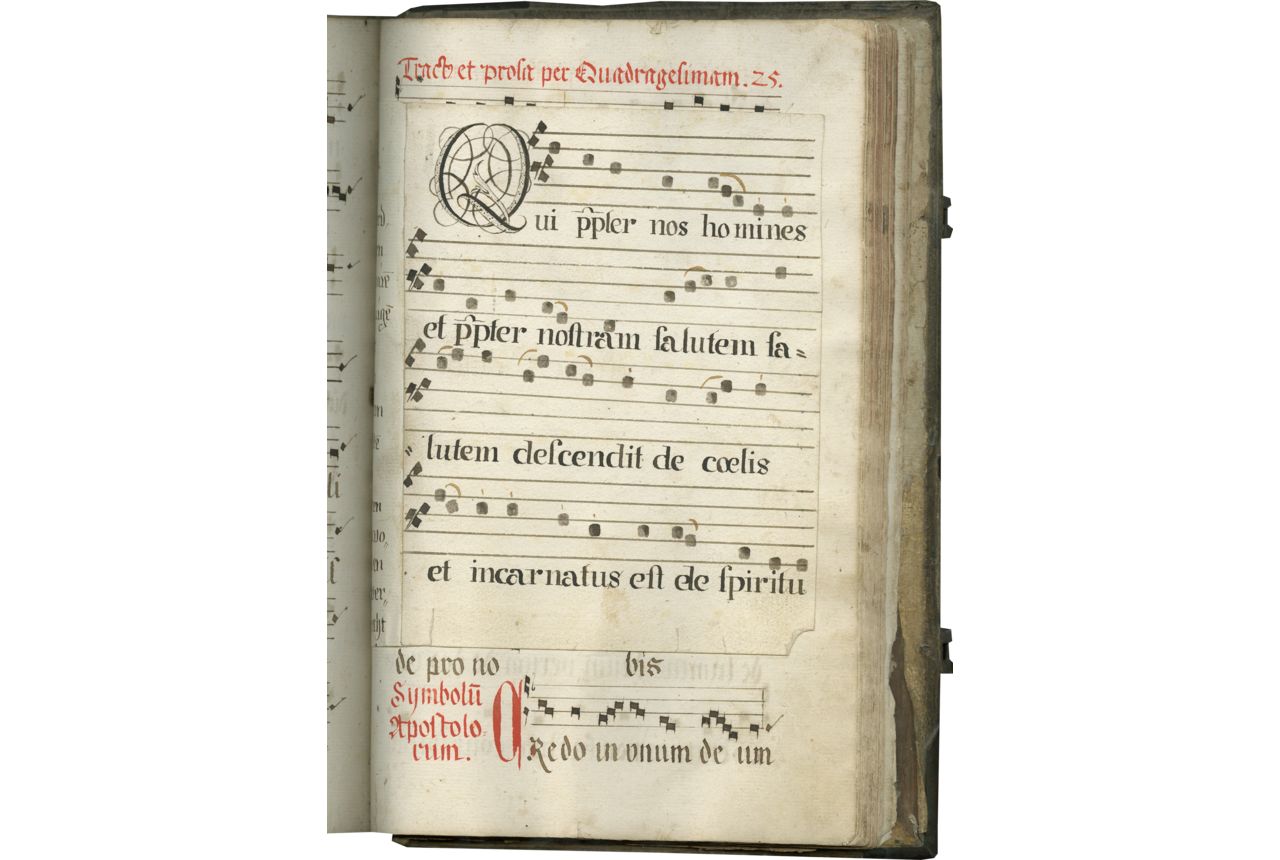 Tractꝰ et prosa per Quadragesimam. 25.
Qui ꝓp̃ter nos homines
et ꝓp̃ter noſtram ſalutem ſa⸗
lutem deſcendit de cœlis
et incarnatus eſt de ſpiritu
de pro no bis
Symbolũ
Apoſtolo⸗
rum.
CRedo in vnum de um